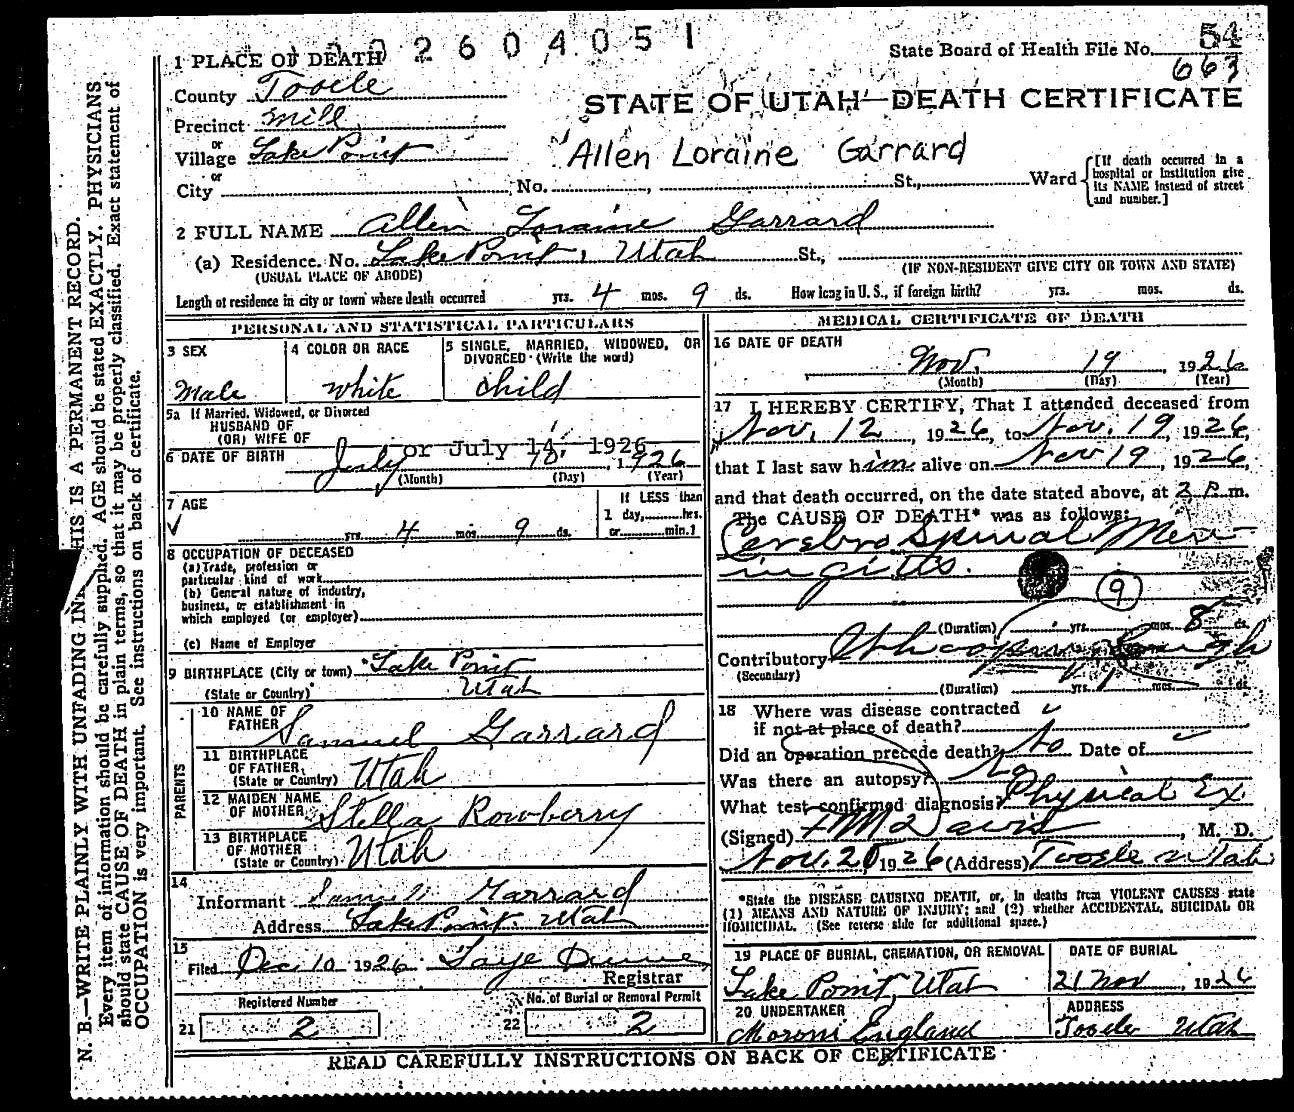 1 0 0 2 6 0 4 0 5 1
State Board of Health File No. 54
663
1 PLACE OF DEATH
County Tooele
STATE OF UTAH—DEATH CERTIFICATE
Precinct Mill
or
Village Lake Point
Allen Loraine Garrard
or
City No. , St., Ward
[If death occurred in a hospital or institution give its NAME instead of street and number.]
2 FULL NAME Allen Loraine Garrard
(a) Residence. No. Lake Point, Utah St.,
(USUAL PLACE OF ABODE) (IF NON-RESIDENT GIVE CITY OR TOWN AND STATE)
Length of residence in city or town where death occurred yrs. 4 mos. 9 ds. How long in U. S., if foreign birth? yrs. mos. ds.
PERSONAL AND STATISTICAL PARTICULARS
3 SEX
Male
4 COLOR OR RACE
White
5 SINGLE, MARRIED, WIDOWED, OR DIVORCED (Write the word)
child
5a If Married, Widowed, or Divorced
HUSBAND OF
(OR) WIFE OF
or July 14, 1926
6 DATE OF BIRTH July 10, 1926
(Month) (Day) (Year)
7 AGE
yrs. 4 mos. 9 ds.
If LESS than
1 day, hrs.
or min.1
8 OCCUPATION OF DECEASED
(a) Trade, profession or
particular kind of work
(b) General nature of industry,
business, or establishment in
which employed (or employer)
(c) Name of Employer
9 BIRTHPLACE (City or town) Lake Point
(State or Country) Utah
PARENTS
10 NAME OF
FATHER Samuel Garrard
11 BIRTHPLACE
OF FATHER
(State or Country) Utah
12 MAIDEN NAME
OF MOTHER Stella Rowberry
13 BIRTHPLACE
OF MOTHER
(State or Country) Utah
14
Informant Samuel Garrard
Address Lake Point, Utah
15
Filed Dec 10 1926
Registrar
Registered Number
21 2
No. of Burial or Removal Permit
22 2
MEDICAL CERTIFICATE OF DEATH
16 DATE OF DEATH
Nov. 19, 1926
(Month) (Day) (Year)
17 I HEREBY CERTIFY, That I attended deceased from
Nov. 12, 1926, to Nov. 19, 1926,
that I last saw him alive on Nov 19, 1926,
and that death occurred, on the date stated above, at 2 P. m.
The CAUSE OF DEATH* was as follows:
Cerebro Spinal Men-
ingitis.
9
(Duration) yrs. mos. 8 ds.
Contributory Whooping Cough
(Secondary)
(Duration) yrs. mos. ds.
18 Where was disease contracted
if not at place of death?
Did an operation precede death? No Date of
Was there an autopsy? No
What test confirmed diagnosis? Physical Ex
(Signed) Davis, M. D.
Nov. 20, 1926 (Address) Tooele Utah
*State the DISEASE CAUSING DEATH, or, in deaths from VIOLENT CAUSES state
(1) MEANS AND NATURE OF INJURY; and (2) whether ACCIDENTAL, SUICIDAL OR
HOMICIDAL. (See reverse side for additional space.)
19 PLACE OF BURIAL, CREMATION, OR REMOVAL
Lake Point, Utah
DATE OF BURIAL
21 Nov, 1926
20 UNDERTAKER
Moroni England
ADDRESS
Tooele Utah
READ CAREFULLY INSTRUCTIONS ON BACK OF CERTIFICATE
N. B.—WRITE PLAINLY WITH UNFADING THIS IS A PERMANENT RECORD.
Every item of information should be carefully supplied. AGE should be stated EXACTLY. PHYSICIANS
should state CAUSE OF DEATH in plain terms, so that it may be properly classified. Exact statement of
OCCUPATION is very important. See instructions on back of certificate.